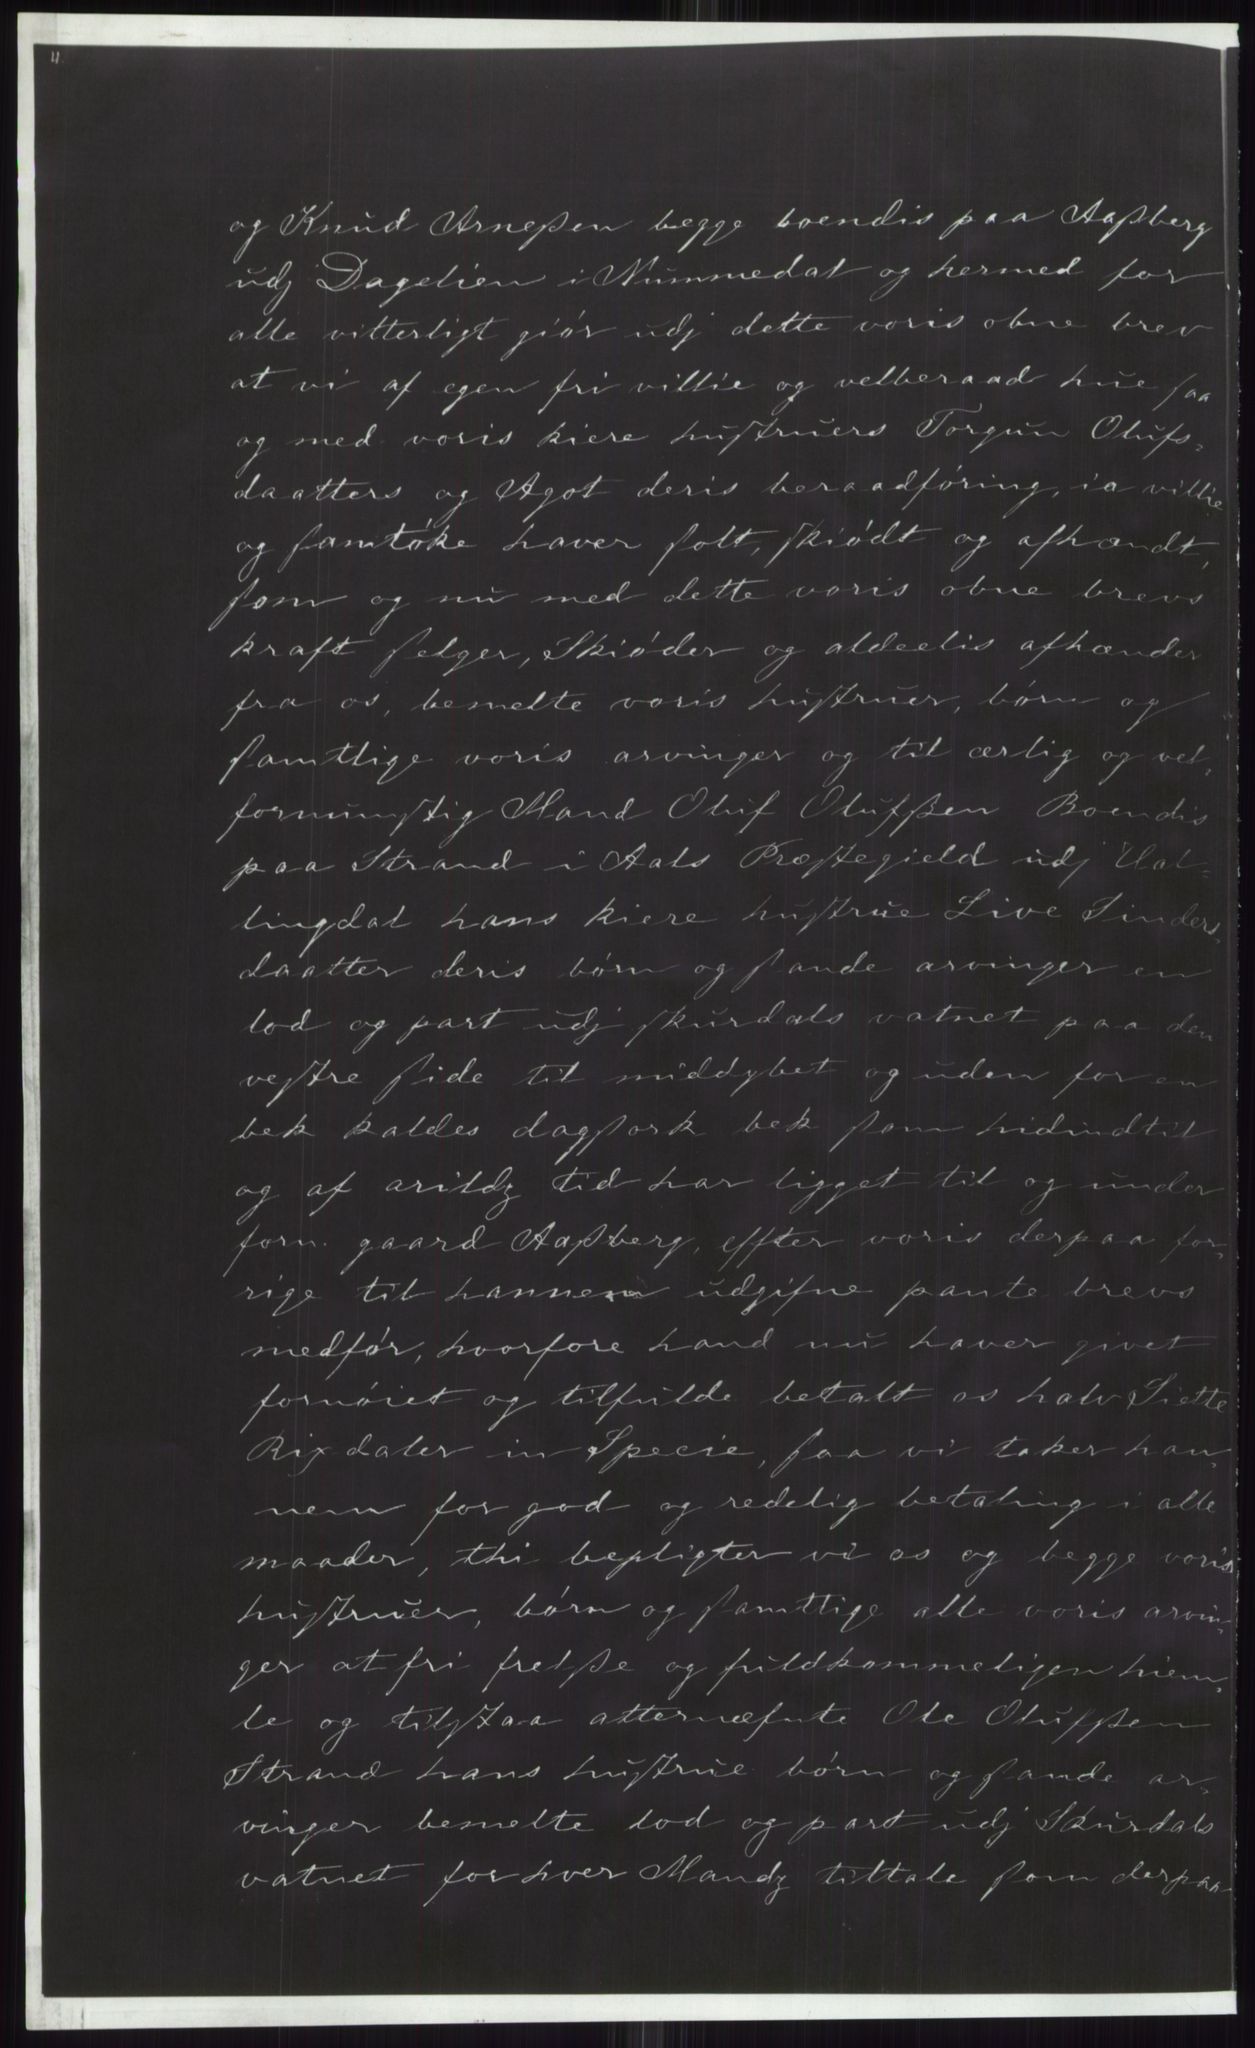 11
og Knud Arneßen begge boendis paa Aaßberg
udj Dagelien i Nummedal og hermed for
alle vitterligt giør udj dette voris obne brev
at vi af egen fri villie og velberaad hue saa
og med voris kiere hustruers Torgun Olufs,
daatters og Agot deris beraadføring, ia villie
og samtøke haver solt, skiødt og afhændt,
som og nu med dette voris obne brevs
kraft selger, Skiøder og aldeelis afhænder
fra os, bemelte voris hustruer, børn og
samtlige voris arvinger og til ærlig og vel,
fornumstig Mand Oluf Olufßen Boendis
paa Strand i Aals Præstegield udj Hal-
lingdal hans kiere hustrue Live Sinders,
daatter deris børn og sande arvinger en
lod og part udj skurdals vatnet paa den
vestre side til middybet og uden for en
bek kaldes dagsork bek som hidindtil
og af arildz tid har ligget til og under
forn. gaard Aaßberg, effter voris derpaa for,
rige til hannem udgifne pante brevs
medfør, hvorfore hand nu haver givet
fornøiet og tilfulde betalt os halv Siette
Rixdaler in Specie, saa vi taker han,
nem for god og redelig betaling i alle
maader, thi bepligter vi os og begge voris
hustruer, børn og samtlige alle voris arvin,
ger at fri frelße og fuldkommeligen hiem,
le og tilstaa atternæfnte Ole Olufßen
Strand hans hustrue børn og sande ar,
vinger bemelte lod og part udj Skurdals
vatnet for hver Mandz tiltale som derpaa